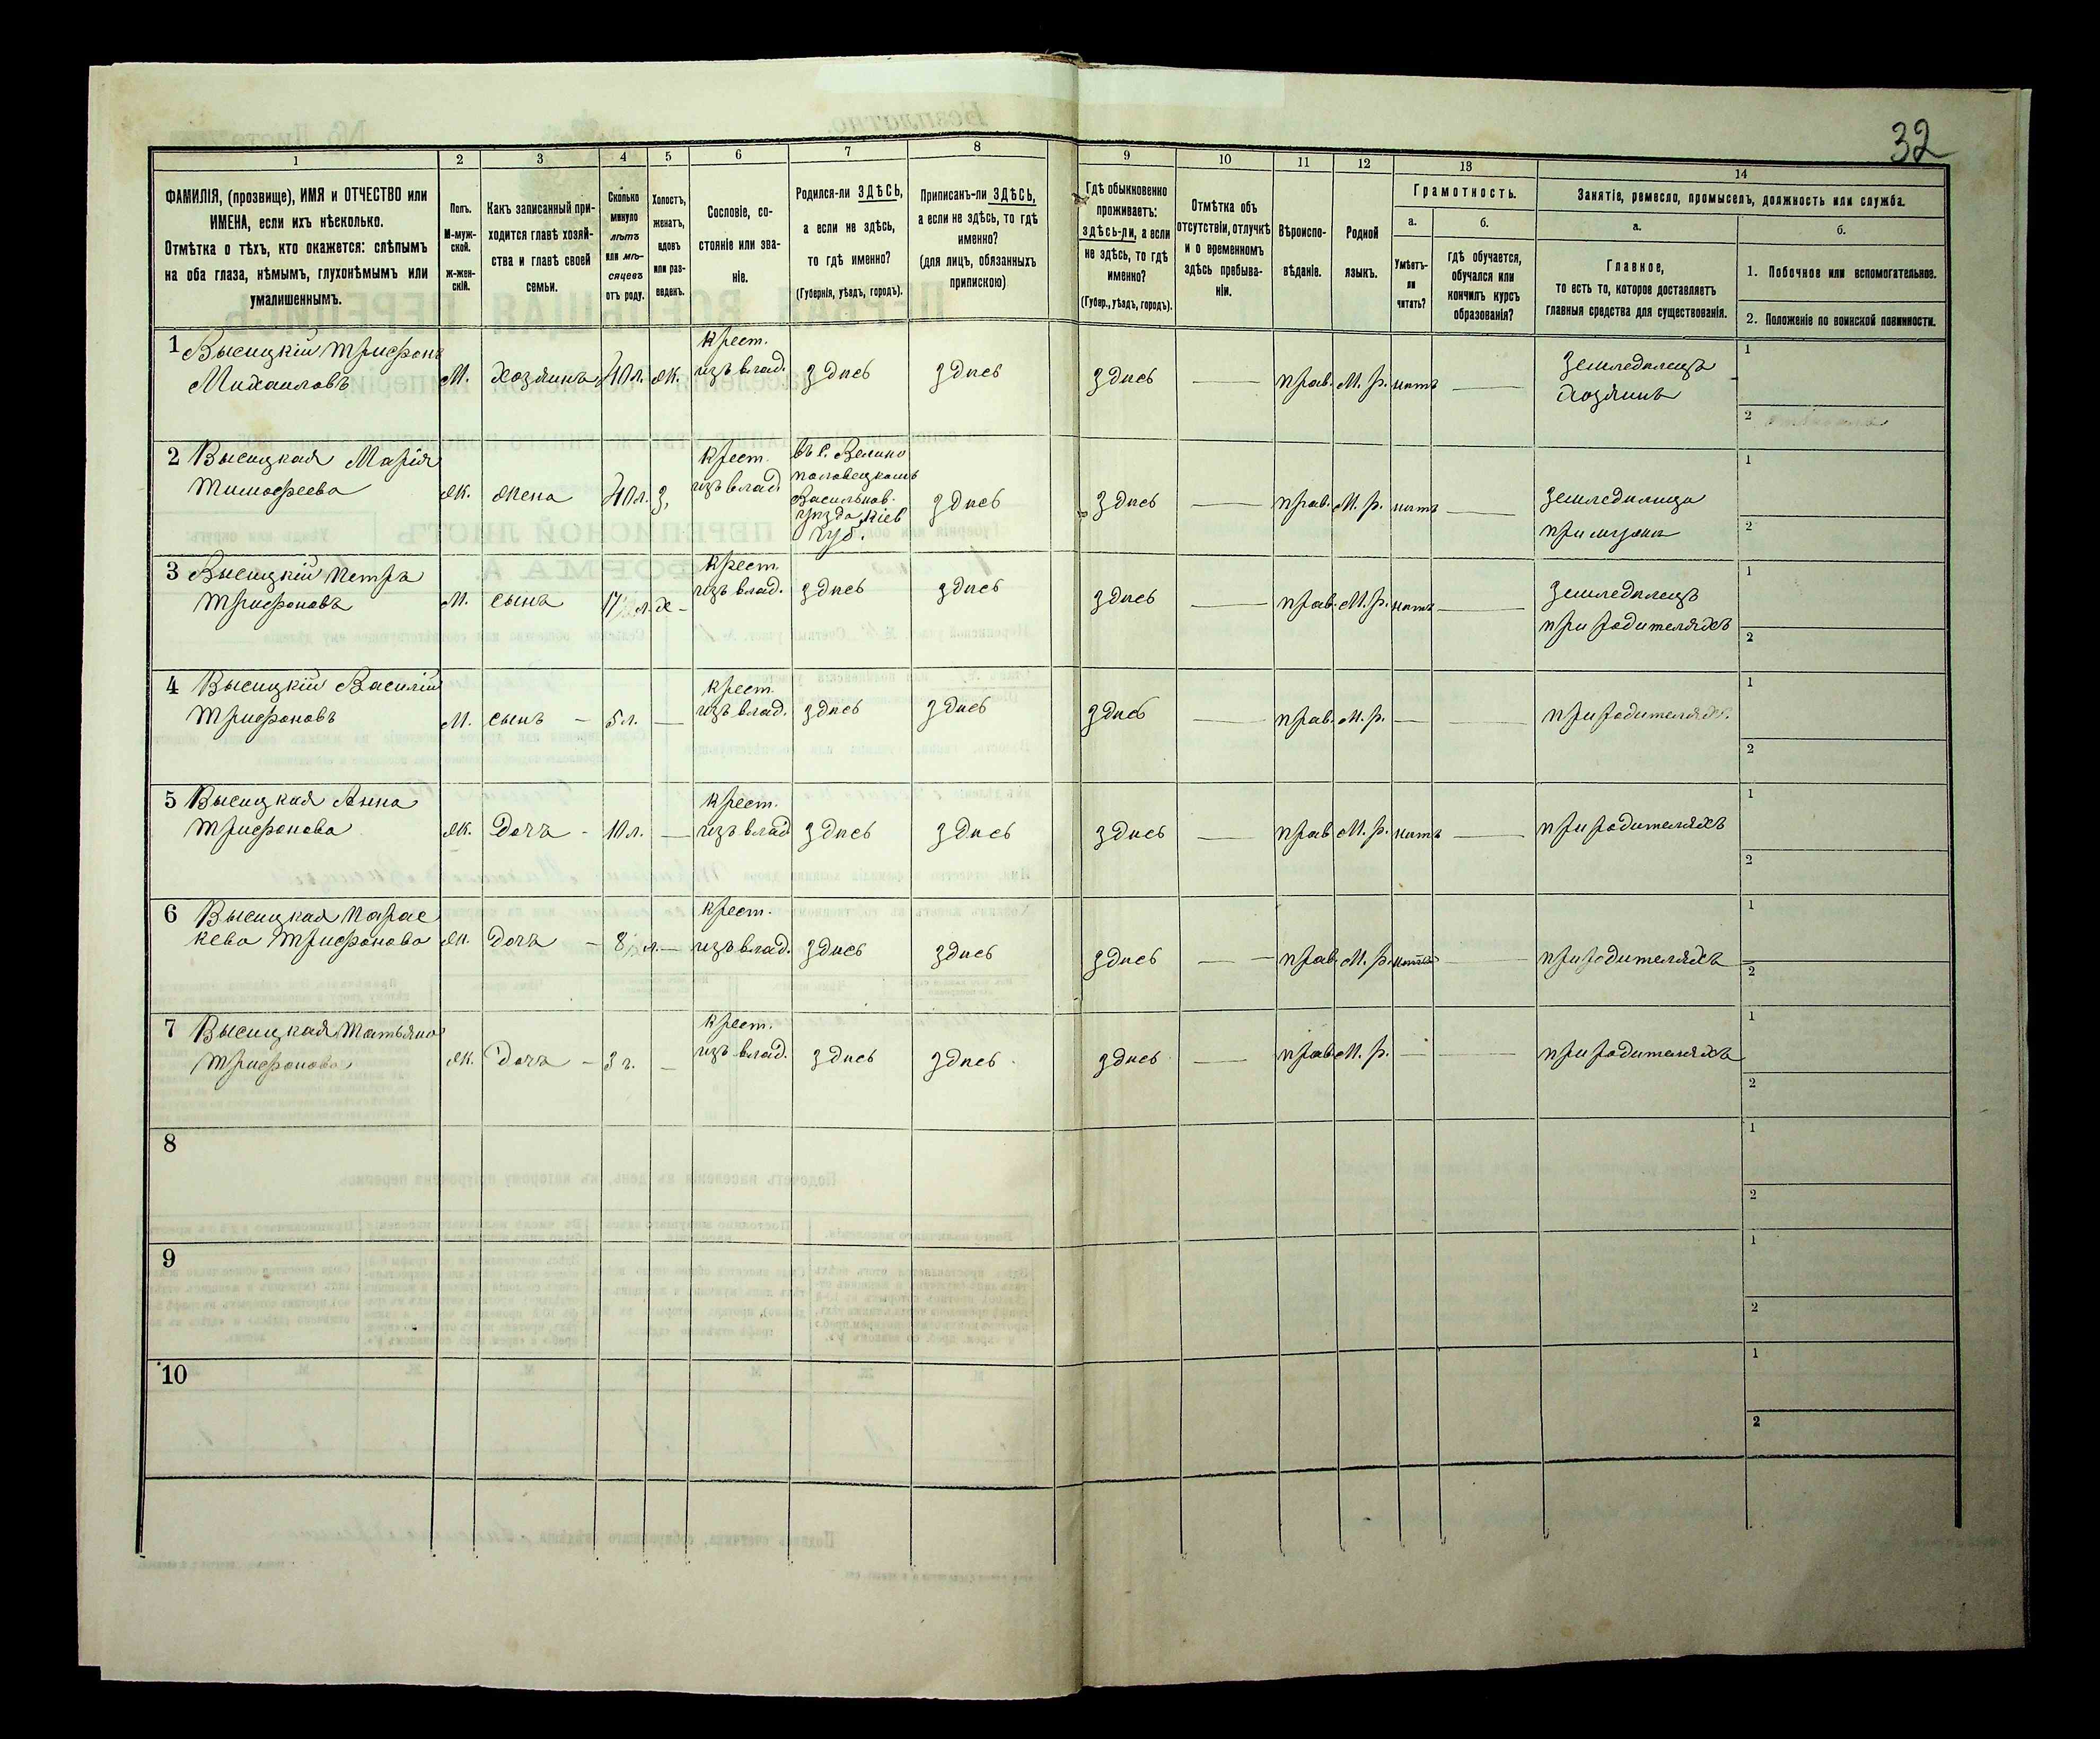 32
1 2 3 4 5 6 7 8 9 10 11 12 13 14
ФАМИЛІЯ, (прозвище), ИМЯ и ОТЧЕСТВО или
ИМЕНА, если ихъ нѣсколько.
Отмѣтка о тѣхъ, кто окажется: слѣпымъ
на оба глаза, нѣмымъ, глухонѣмымъ или
умалишеннымъ.
Полъ.
М-муж-
ской.
Ж-жен-
скій.
Какъ записанный при-
ходится главѣ хозяй-
ства и главѣ своей
семьи.
Сколько
минуло
лѣтъ
или мѣ-
сяцевъ
отъ роду.
Холостъ,
женатъ,
вдовъ
или раз-
веденъ.
Сословіе, со-
стояніе или зва-
ніе.
Родился-ли ЗДѢСЬ,
а если не здѣсь,
то гдѣ именно?
(Губернія, уѣздъ, городъ).
Приписанъ-ли ЗДѢСЬ,
а если не здѣсь, то гдѣ
именно?
(для лицъ, обязанныхъ
припискою)
Гдѣ обыкновенно
проживаетъ:
здѣсь-ли, а если
не здѣсь, то гдѣ
именно?
(Губер., уѣздъ, городъ).
Отмѣтка объ
отсутствіи, отлучкѣ
и о временномъ
здѣсь пребыва-
ніи.
Вѣроиспо-
вѣданіе.
Родной
языкъ.
Грамотность.
а.
Умѣетъ-
ли
читать?
б.
гдѣ обучается,
обучался или
кончилъ курсъ
образованія?
Занятіе, ремесло, промыселъ, должность или служба.
а.
Главное,
то есть то, которое доставляетъ
главныя средства для существованія.
б.
1. Побочное или вспомогательное.
2. Положеніе по воинской повинности.
1 Высицкій Трифонъ
Михаиловъ
М. хозяинъ 40 л. ж.
крест.
изъ влад.
здѣсь здѣсь здѣсь — прав. М. р. нѣтъ —
земледѣлецъ
хозяинъ
1
2
2 Высицкая Марія
Тимофеева
ж. жена 40 л. з.
крест.
изъ влад.
въ с. Велико
половецкомъ
Васильков.
уѣзда, Кіев
губ.
здѣсь здѣсь — прав. М. р. нѣтъ —
земледѣлица
при мужѣ
1
2
3 Высицкій Петръ
Трифоновъ
М. сынъ 17 л. х —
крест.
изъ влад.
здѣсь здѣсь здѣсь — прав. М. р. нѣтъ —
земледѣлецъ
при родителяхъ
1
2
4 Высицкій Василій
Трифоновъ
М. сынъ — 5 л. —
крест.
изъ влад.
здѣсь здѣсь здѣсь — прав. М. р. — —
при родителяхъ
1
2
5 Высицкая Анна
Трифонова
ж. дочь - 10 л. —
крест.
изъ влад
здѣсь здѣсь здѣсь — прав М. р. нѣтъ —
при родителяхъ
1
2
6 Высицкая Парас
кева Трифонова
ж. дочь — 8 л. —
крест.
изъ влад.
здѣсь здѣсь здѣсь — — прав. М. р. нѣтъ —
при родителяхъ
1
2
7 Высицкая Татьяна
Трифонова
ж. дочь — 3 г. —
крест.
изъ влад.
здѣсь здѣсь здѣсь — прав М. р. — —
при родителяхъ
1
2
8
1
2
9
1
2
10
1
2